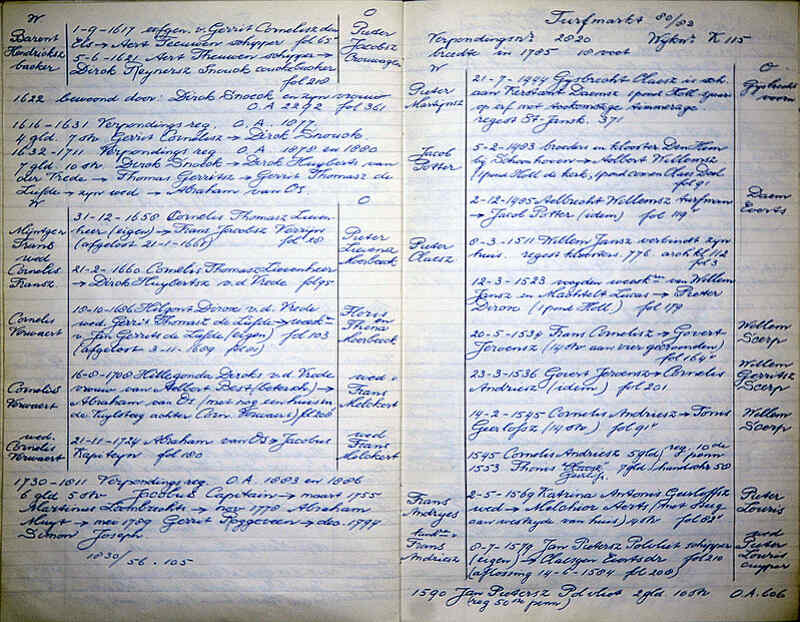 W O
Barent Hendricksz backer
1-9-1617 erfgen. v. Gerrit Cornelisz den
Els → Aert Teeuwen schipper fol 65
5-6-1621 Aert Theuwen schipper →
Dirck Reynersz Snouck fol 218
Pieter Jacobsz
1622 bewoond door: Dirck Snoeck en zijn vrouw
O.A. 2292 fol 361
1616-1631 Verpondings reg. O.A. 1877
4 gld. 7 stv Gerrit Cornelisz → Dirck Snouck
1632-1711 Verpondings reg O.A. 1878 en 1880
7 gld. 10 stv Dirck Snoeck → Dirck Huyberts van
der Vrede → Thomas Gerritsz → Gerrit Thomasz de
Liefde → zijn wed → Abraham van Os.
W O
Frans wed Cornelis Fransz.
31-12-1658 Cornelis Thomasz Lieven
heer (eigen) → Frans Jacobsz Verrijn
(afgelost 21-1-1661) fol 28
Pieter Lievensz
21-2-1660 Cornelis Thomasz Lievenheer
→ Dirck Huybertsz v.d. Vrede fol 95
Cornelis Verwaert
18-10-1686 Hilgont Dircx v.d. Vrede
wed. Gerrit Thomasz de Liefde →
v Jan Gerrits de Liefde (eigen) fol 103
(afgelost 3-11-1689 fol 01)
Floris en
Cornelis Verwaert
16-8-1708 Hillegonda Dircks v.d. Vrede
vrouw van Aelbert Best (beterch) →
Abraham van Os (met nog een huis in
de Kuylsteeg achter Corn. Verwaert) fl 208
wed v Frans Melckert
wed. Cornelis Verwaert
21-11-1724 Abraham van Os → Jacobus
Kapiteyn fol 180
wed Frans Melckert
1730-1811 Verpondings reg. O.A. 1883 en 1886
6 gld 5 stv Jacobus Capitain → maart 1755
Martinus Lambrechts → nov 1778 Abraham
Muyt → mei 1789 Gerrit Roggeveen → dec. 1799
Simon Joseph
1830/56. 105
Turfmarkt 80/82
Verpondingsnr 2820 Wijknr K 115
breedte in 1785 18 voet
W O
Pieter Martijnsz
21-7-1444 Gysbrecht Claesz is sch.
aan Kerstant Daemsz 1 pond Holl sjaars
op erf met
regest St-Jansk. 371
Jacob Potter
5-2-1483 broeders en klooster Den Hem
bij Schoonhoven → Aelbert Willemsz
(1 pond Holl de kerk, 1 pond
fol 91
2-12-1485 Aelbrecht Willemsz turfman
→ Jacob Potter (idem) fol 119
Daem Everts
Pieter Claesz
8-3-1511 Willem Jansz verbindt zijn
huis. regest kloosters 776 arch kl 112
fol 3
12-3-1523 voyden van Willem
Jansz en Machtelt Lucas → Pieter
Dircx (1 pond Holl.) fol 179
20-5-1534 Frans Cornelisz → Govert
Jeroensz (14 stv aan vier gesworenden)
fol 164
Willem Scerp
23-3-1536 Govert Jeroensz → Cornelis
Andriesz (idem) fol 201
Willem Gerritsz Scerp
14-2-1545 Cornelis Andriesz → Tonis
Geerlofsz (14 stv) fol 91
Willem Scerp
1545 Cornelis Andriesz 5 gld reg. 10de penn
1553 Thonis 7 gld 58
Frans Andryes
2-5-1569 Katrina Antonis Geerloffsz
wed → Melchior Aerts
aan westzyde van huis) 4 stv fol 82
Pieter Louris
Frans Andriesz
8-7-1579 Jan Pietersz Polvliet schipper
(eigen) → Claesgen Evertsdr fol 210
(aflossing 14-6-1584 fol 208)
wed Pieter Louris cuyper
1590 Jan Pietersz Polvliet 2 gld 10 stv O.A. 606
(reg 50ste penn)